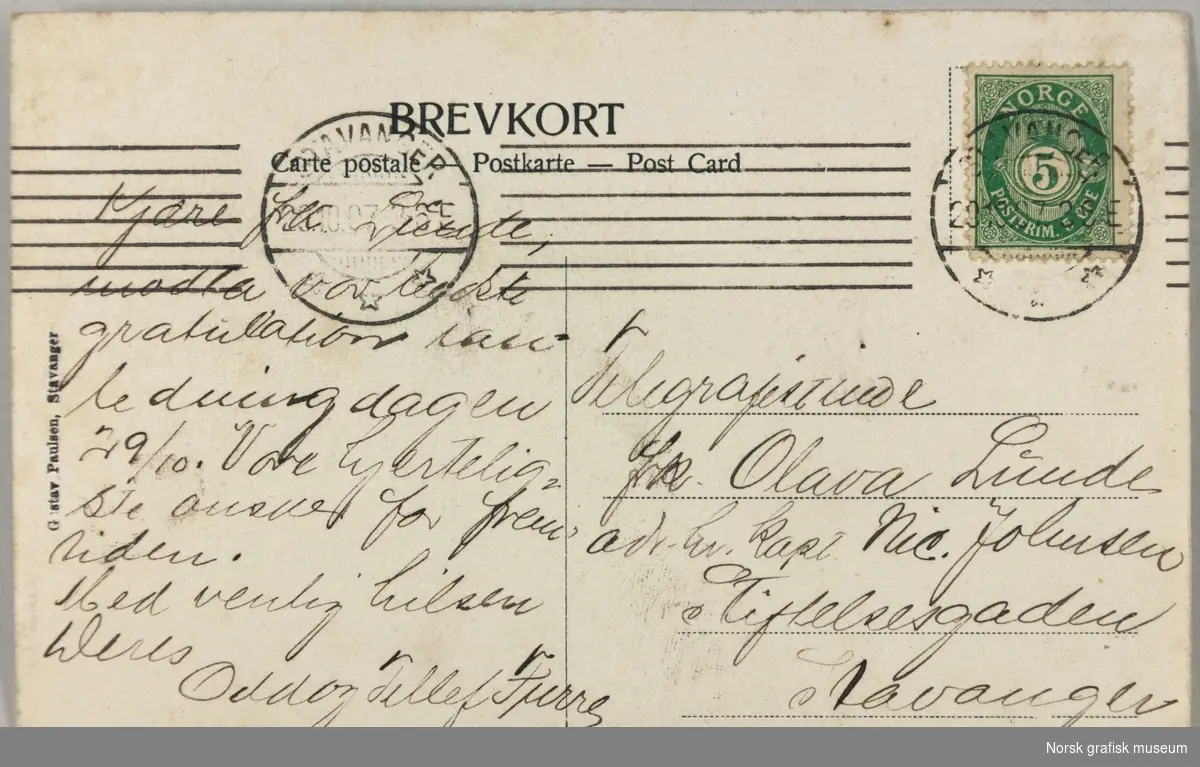 BREVKORT
Carte postale — Postkarte — Post Card
STAVANGER
NORGE
5
POSTFRIM. 5 ØRE
Kjære frk Lunde,
modta vor bedste
gratulation i an-
ledning dagen
29/10. Vore hjertelig-
ste ønsker for frem-
tiden.
Med venlig hilsen
Deres
Odd og Tellef Furre
Telegrafistinde
frk. Olava Lunde
adr. hr. kapt. Nic. Johnsen
Stiftelsesgaden
Stavanger
Gustav Paulsen, Stavanger
Norsk grafisk museum